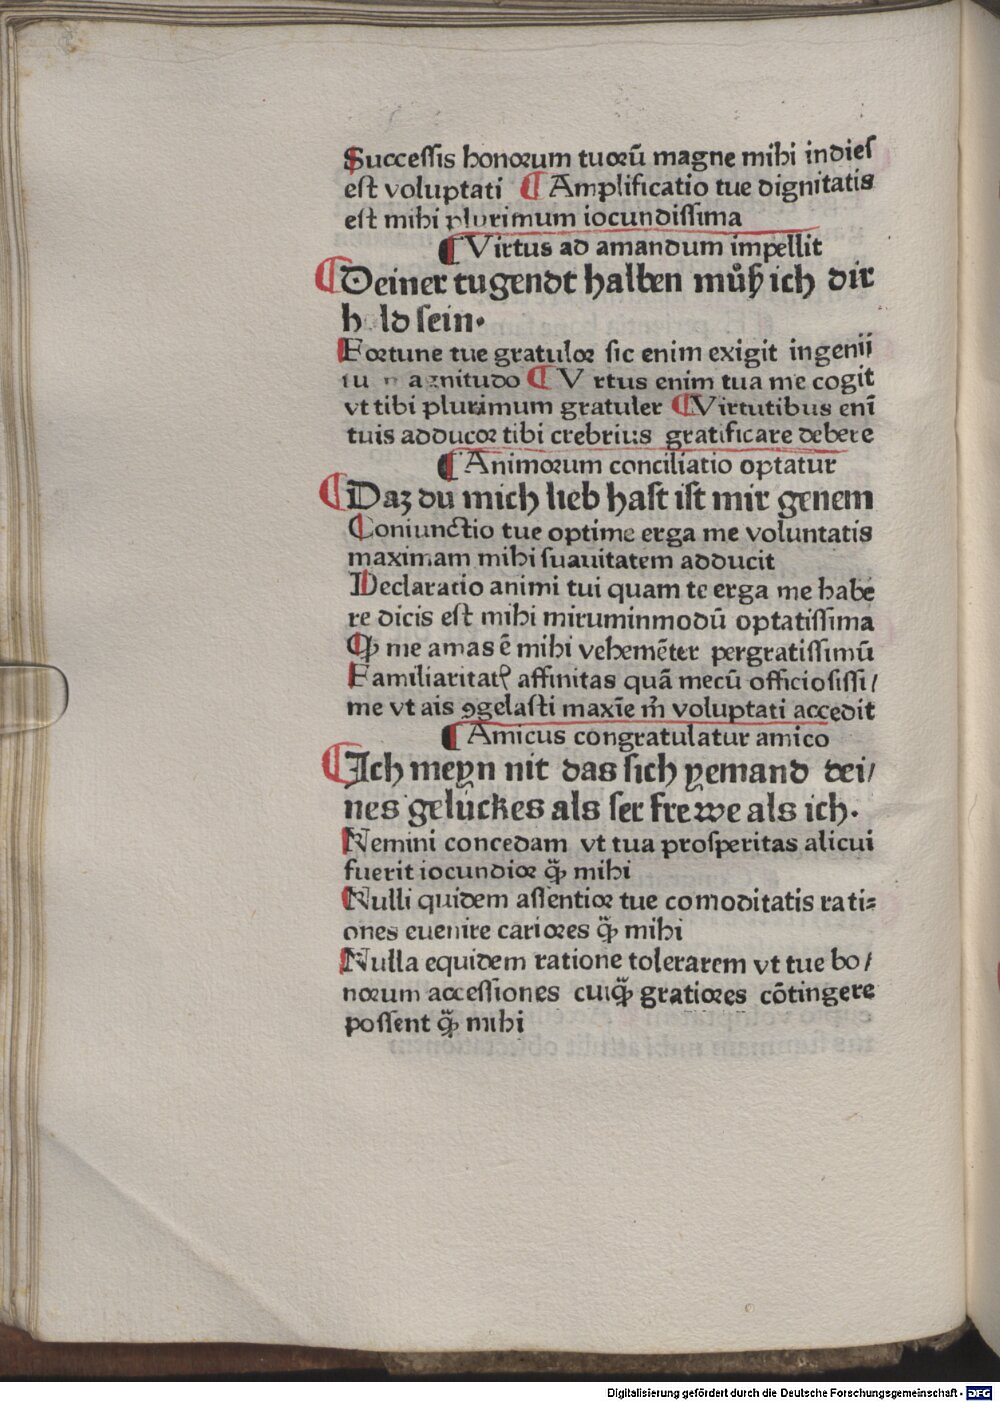 Succeſſis honoꝛum tuoꝛū magne mihi indieſ
eſt voluptati ¶ Amplificatio tue dignitatis
eſt mihi plurimum iocundiſſima
¶ Virtus ad amandum impellit
¶ Deiner tugendt halben muͦſz ich dir
hold ſein.
Foꝛtune tue gratuloꝛ ſic enim exigit ingenij
tui magnitudo ¶ Virtus enim tua me cogit
vt tibi plurimum gratuler ¶ Virtutibus enī
tuis adducoꝛ tibi crebrius gratificare debere
¶ Animoꝛum conciliatio optatur
¶ Daz du mich lieb haſt iſt mir genem
Coniunctio tue optime erga me voluntatis
maximam mihi ſuauitatem adducit
Declaratio animi tui quam te erga me habe
re dicis eſt mihi miruminmodū optatiſſima
Ꝙ me amas ē mihi vehemēter pergratiſſimū
Familiaritatꝭ affinitas quā mecū officioſiſſi/
me vt ais ꝯgelaſti maxīe m̄ voluptati accedit
¶ Amicus congratulatur amico
¶ Ich meyn nit das ſich yemand dei/
nes geluckes als ſer frewe als ich.
Nemini concedam vt tua proſperitas alicui
fuerit iocundioꝛ q̈ꝫ mihi
Nulli quidem aſſentioꝛ tue comoditatis rati⸗
ones euenire carioꝛes q̈ꝫ mihi
Nulla equidem ratione tolerarem vt tue bo/
noꝛum acceſſiones cuiq̈ꝫ gratioꝛes cōtingere
poſſent q̈ꝫ mihi
Digitalisierung gefördert durch die Deutsche Forschungsgemeinschaft - DFG